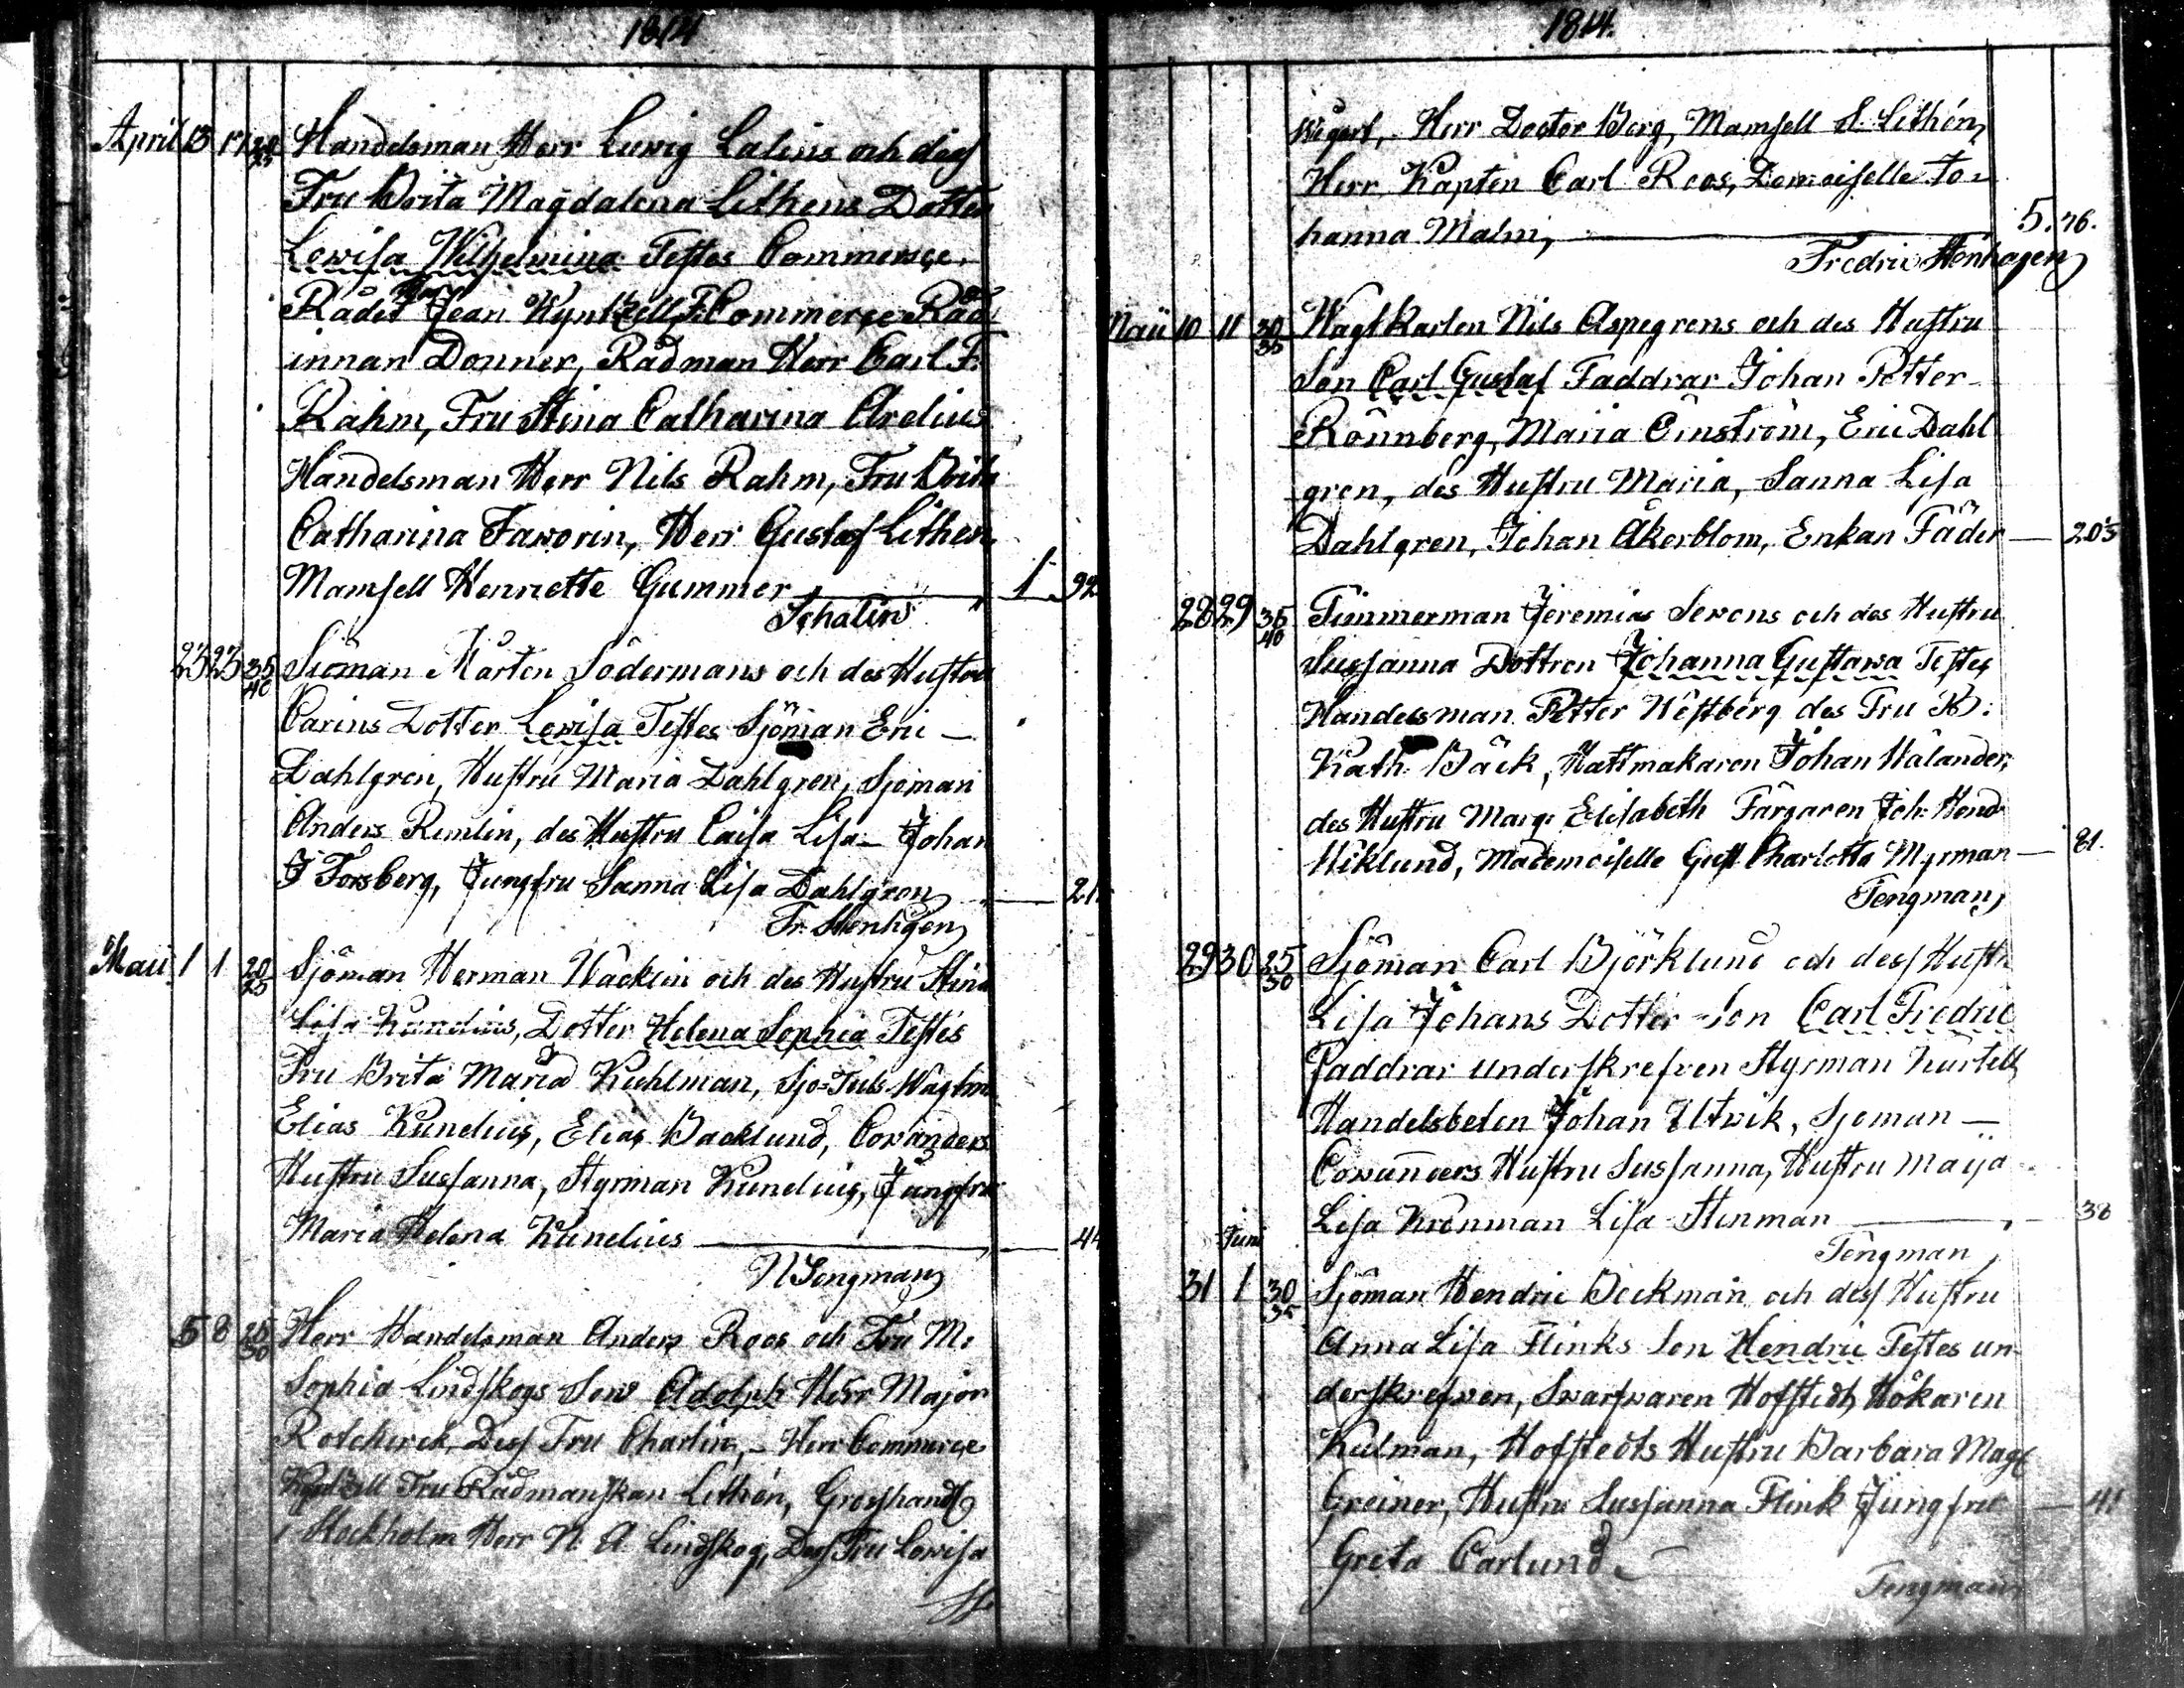 1814
April 13 17 20/25 Handelsman Herr Luvig Lalins och dess
Fru Brita Magdalena Lithens Dotter
Lovisa Wilhelmina Testes Commerce-
Rådet Herr Jean Kyntzell, Fr. Commerce Råd
innan Donner, Rådman Herr Carl F.
Rahm, Fru Stina Catharina Arelius
Handelsman Herr Nils Rahm, Fru Brita
Catharina Faworin, Herr Gustaf Lithen,
Mamsell Henriette Gummer — 1. 92
Schalin
23 23 35/40 Siöman Mårten Södermans och des Hustru
Carins Dotter Lovisa Testes Sjöman Eric —
Dahlgren, Hustru Maria Dahlgren, Sjöman
Anders Remlin, des Hustru Caisa Lisa — Johan
J Forsberg, Jungfru Sanna Lisa Dahlgren — 21
Fr. Stenhgen
Maii 1 1 20/25 Sjöman Herman Wacklin och des Hustru Stina
Lisa Kunelius, Dotter Helena Sophia Testes
Fru Brita Maria Kuhlman, Sjö-Tuls Wagtm
Elias Kunelius, Elias Backlund, Cowanders
Hustru Sussanna, Styrman Kunelius, Jungfru
Maria Helena Kunelius — 44
N Tengman
5 8 25/30 Herr Handelsman Anders Roos och Fru M:
Sophia Lindskogs Son Adolph Herr Major
Rotckirck, Dess Fru Charlin, — Herr Commerce
Kyntzell Fru Rådmanskan Lithén, Grosshandl
i Stockholm Herr N. A. Lindskog, Dess Fru Lovisa
1814.
Wegert, Herr Doctor Berg, Mamsell S. Lithén,
Herr Kapten Carl Roos, Demoiselle Jo-
hanna Malm, — 5. 76.
Fredric Stenhagen
Maii 10 11 30/35 Wagtkarlen Nils Aspegrens och des Hustru
Son Carl Gustaf Faddrar Johan Petter
Rönnberg, Maria Enström, Eric Dahl
gren, des Hustru Maria, Sanna Lisa
Dahlgren, Johan Åkerblom, Enkan Fäder — 20
28 29 35/40 Timmerman Jeremias Sevons och des Hustru
Sussanna Dottren Johanna Gustawa Testes
Handelsman Petter Westberg des Fru B:
Kath: Bäck, Hattmakaren Johan Wälander,
des Hustru Marg: Elisabeth Färgaren Joh: Hend
Wiklund, Mademoiselle Gust Charlotta Myrman — 81.
Tengman
29 30 25/30 Sjöman Carl Björklund och dess Hustru
Lisa Johans Dotter Son Carl Fredric
Faddrar underskrefven Styrman Kurtell
Handelsbeten Johan Utwik, Sjöman —
Cowanders Hustru Sussanna, Hustru Maija
Lisa Krönman Lisa Stenman — 38
Tengman
Juni
31 1 30/35 Sjöman Hendric Beckman och dess Hustru
Anna Lisa Flinks Son Hendric Testes un-
derskrefven, Swarfwaren Hofstedt, Hökaren
Kulman, Hofstedts Hustru Barbara Magl
Greiner, Hustru Sussanna Flink Jungfru — 41
Greta Carlund —
Tengman